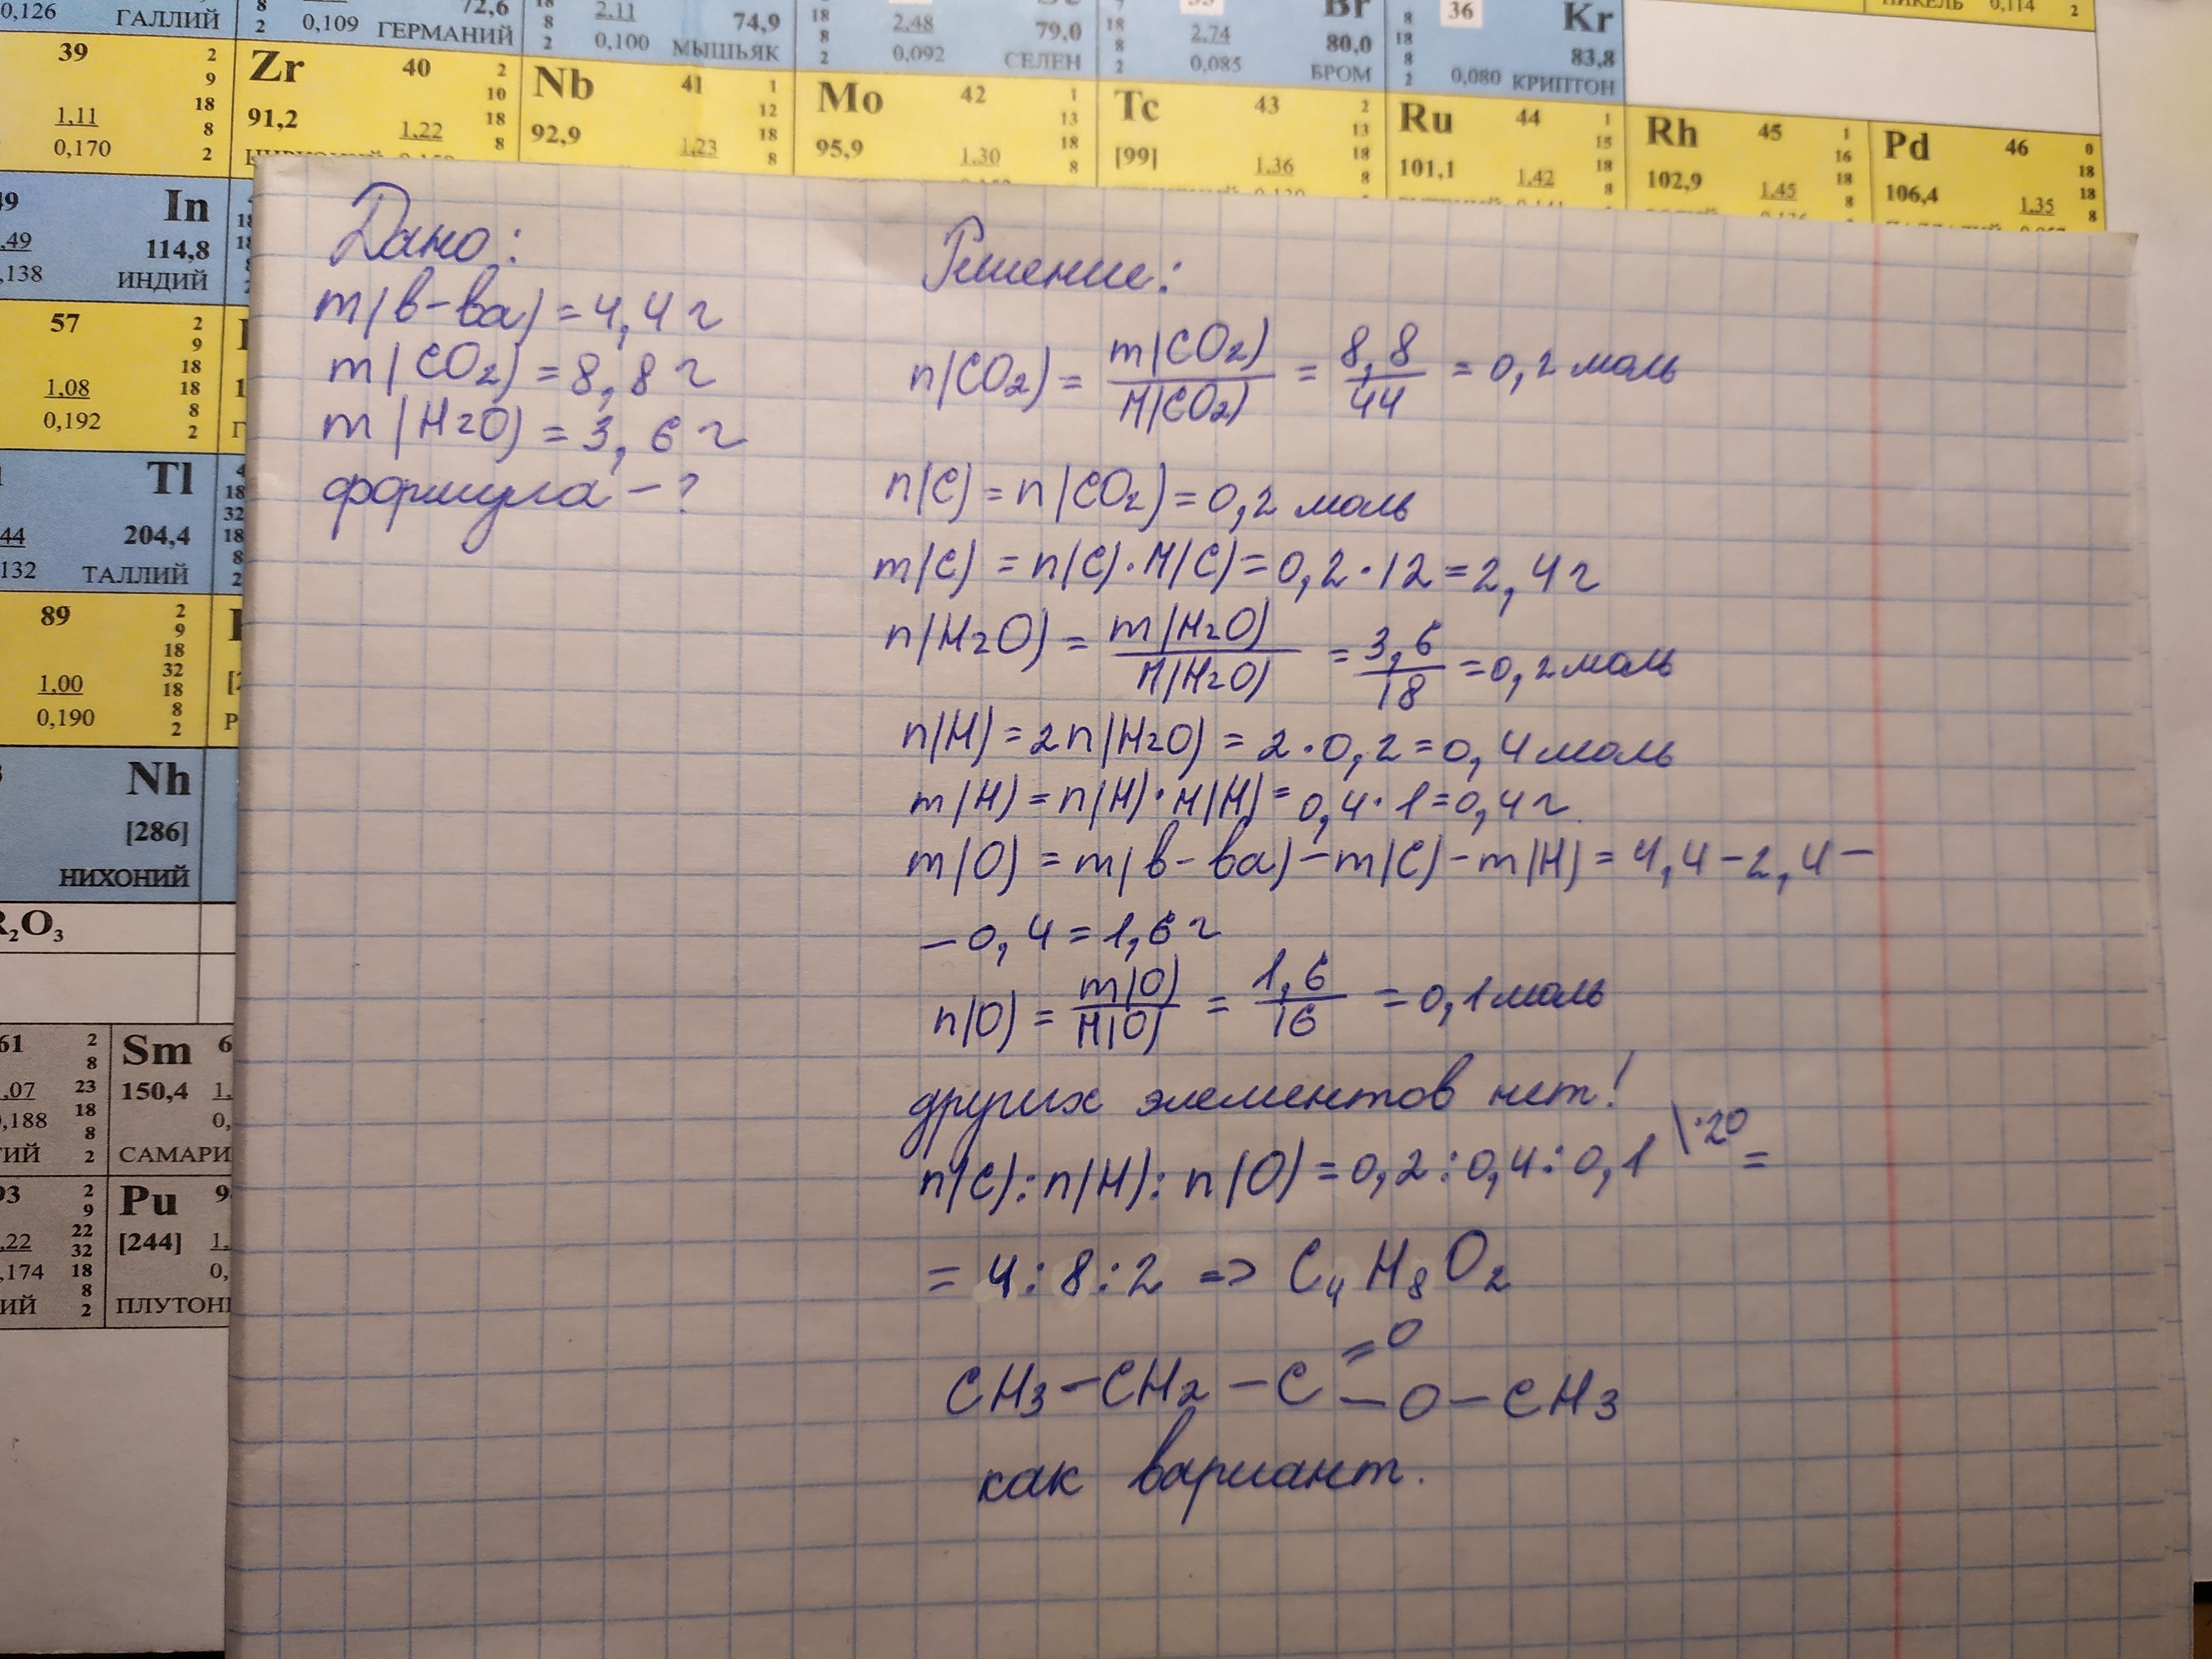 0,126 ГАЛЛИЙ
8 2 0,109 72,6 ГЕРМАНИЙ
18 8 2 2,11 0,100 74,9 МЫШЬЯК
18 8 2 2,48 0,092 79,0 СЕЛЕН
18 8 2 2,74 0,085 Br 80,0 БРОМ
8 18 8 2 36 Kr 83,8 0,080 КРИПТОН
НИКЕЛЬ 0,114 2
39 2 9 18 8 2 1,11 0,170
Zr 40 91,2 1,22 2 10 18 8
Nb 41 92,9 1,23 1 12 18 8
Mo 42 95,9 1,30 1 13 18 8
Tc 43 [99] 1,36 2 13 18 8
Ru 44 101,1 1,42 1 15 18 8
Rh 45 102,9 1,45 1 16 18 8
Pd 46 106,4 1,35 0 18 18 8
49 In ,49 114,8 ,138 ИНДИЙ
57 2 9 18 18 8 2 1,08 0,192
Tl 44 204,4 132 ТАЛЛИЙ
89 2 9 18 32 18 8 2 1,00 0,190
Nh [286] НИХОНИЙ
R₂O₃
61 2 8 23 18 8 2 ,07 0,188
Sm 6 150,4 1, 0, САМАРИ
93 2 9 22 32 18 8 2 ,22 ,174
Pu 9 [244] 1, 0, ПЛУТОНИ
Дано:
m(в-ва) = 4,4 г
m(CO₂) = 8,8 г
m(H₂O) = 3,6 г
формула – ?
Решение:
n(CO₂) = m(CO₂)/M(CO₂) = 8,8/44 = 0,2 моль
n(C) = n(CO₂) = 0,2 моль
m(C) = n(C)·M(C) = 0,2·12 = 2,4 г
n(H₂O) = m(H₂O)/M(H₂O) = 3,6/18 = 0,2 моль
n(H) = 2n(H₂O) = 2·0,2 = 0,4 моль
m(H) = n(H)·M(H) = 0,4·1 = 0,4 г.
m(O) = m(в-ва) – m(C) – m(H) = 4,4 – 2,4 –
– 0,4 = 1,6 г
n(O) = m(O)/M(O) = 1,6/16 = 0,1 моль
других элементов нет!
n(C):n(H):n(O) = 0,2:0,4:0,1 \·20 =
= 4:8:2 => C₄H₈O₂
=O
CH₃–CH₂–C–O–CH₃
как вариант.